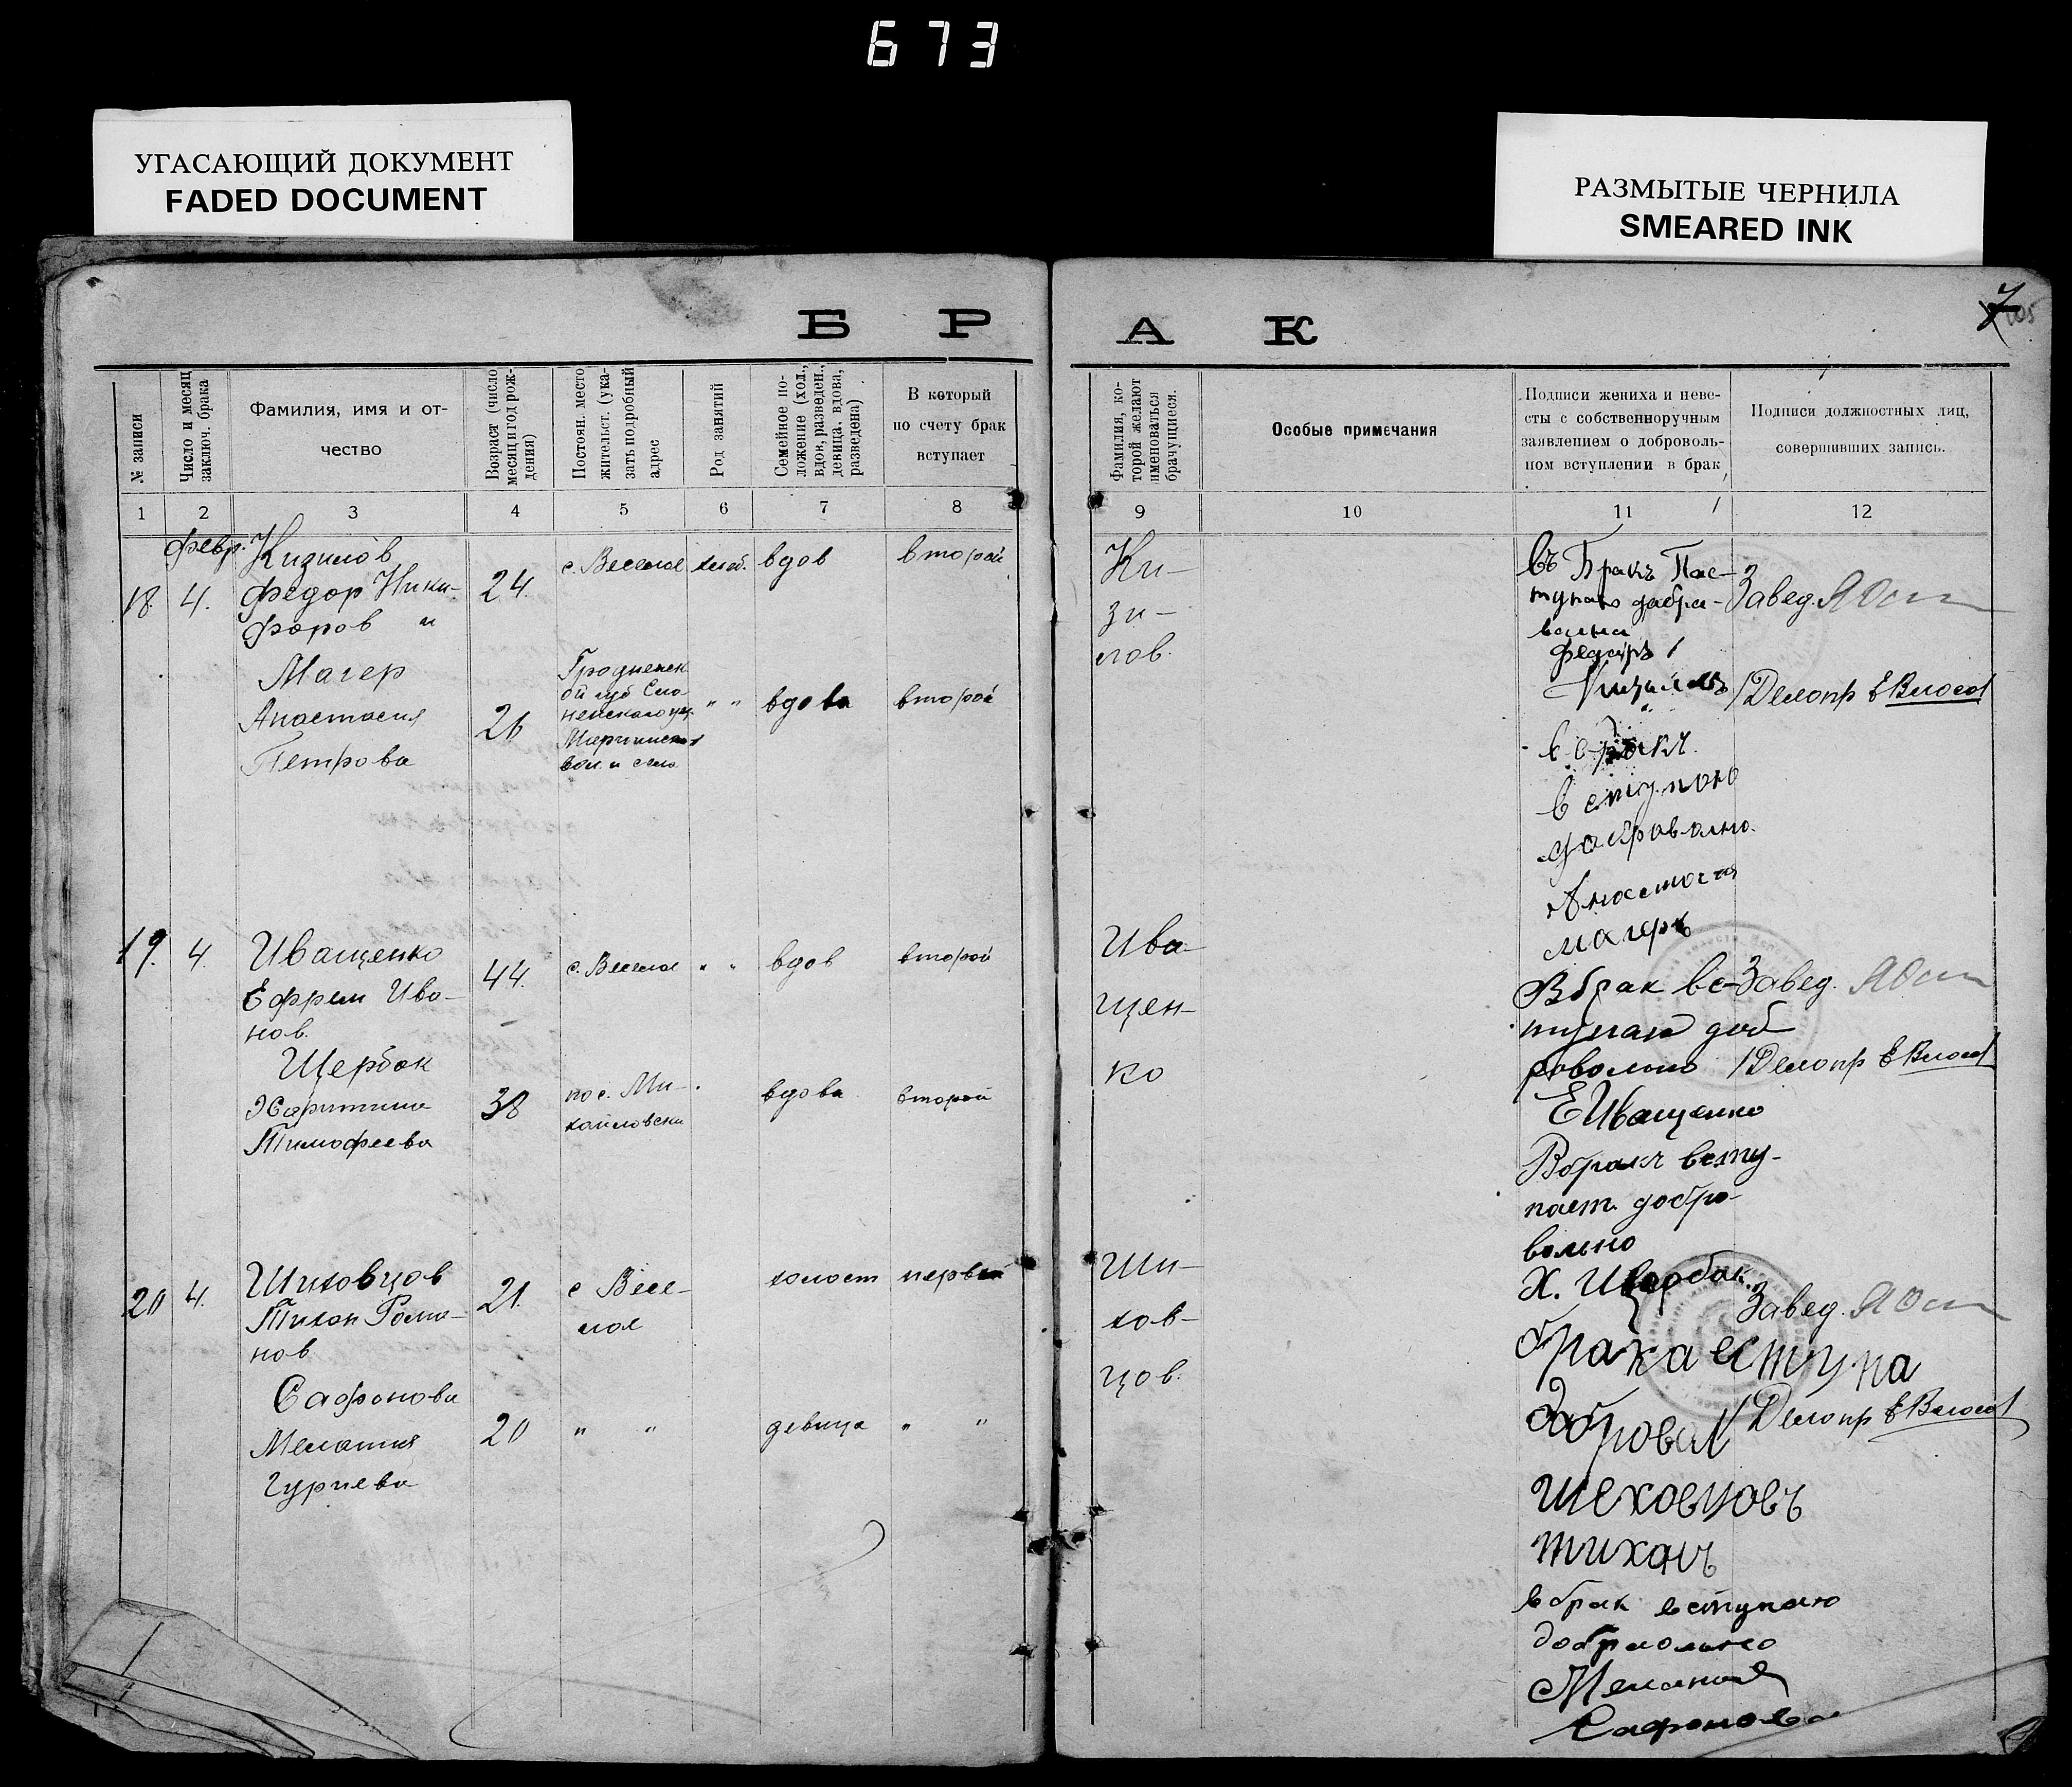 673
УГАСАЮЩИЙ ДОКУМЕНТ
FADED DOCUMENT
РАЗМЫТЫЕ ЧЕРНИЛА
SMEARED INK
7
105
Б Р А К
№ записи
Число и месяц
заключ. брака
Фамилия, имя и от-
чество
Возраст (число
месяц и год рож-
дения)
Постоян. место
жительст. (ука-
зать подробный
адрес
Род занятий
Семейное по-
ложение (хол.,
вдов, разведен.,
девица, вдова,
разведена)
В который
по счету брак
вступает
Фамилия, ко-
торой желают
именоваться
брачущиеся.
Особые примечания
Подписи жениха и неве-
сты с собственноручным
заявлением о доброволь-
ном вступлении в брак
Подписи должностных лиц,
совершивших запись.
1 2 3 4 5 6 7 8 9 10 11 12
февр.
18. 4.
Кизилов
Федор Ники-
форов и
24.
с. Веселое
хлеб.
вдов
второй
Магер
Анастасия
Петрова
26
Гродненск
ой губ Сло
немского уез.
вол. и села
" "
вдова
второй
Ки-
зи-
лов.
въ Бракъ Пас-
тупаю дабра-
вална
Федоръ
Кизиловъ
в бракъ
вступою
доброволно.
Анастасия
Магеръ
Завед.
Делопр
19. 4.
Иващенко
Ефрем Ива-
нов.
44.
с. Веселое
" "
вдов
второй
Щербак
Харитина
Тимофеева
38
пос. Ми-
хайловски
вдова
второй
Ива-
щен-
ко
В брак вс-
тупаю доб
ровольно
Е Иващенко
В бракъ всту-
пает добро-
вольно
Х. Щербак.
Завед.
Делопр
20 4.
Шиховцов
Тихон Рома-
нов
21.
с Весе-
лое
холост
первый
Сафонова
Мелания
Гуриева
20
" "
девица
" "
Ши-
хов-
цов.
брака вступа
добровал
шеховцовъ
тиханъ
в брак вступаю
Мелания
Сафонова
Завед.
Делопр